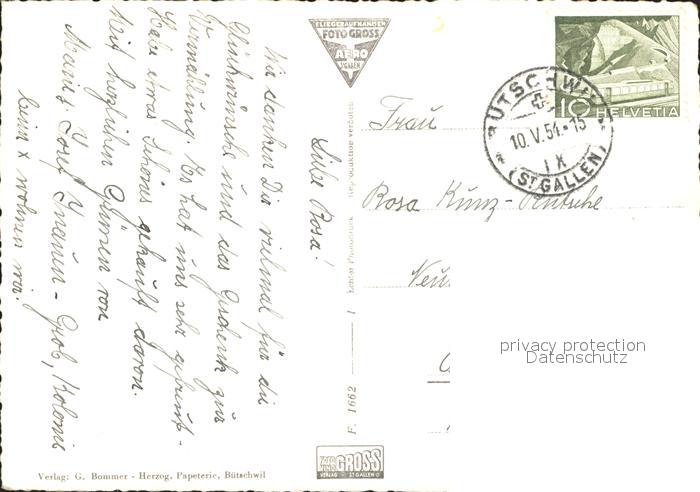 FLIEGERAUFNAHMEN
FOTO GROSS
AERO
ST. GALLEN
HELVETIA
10
BÜTSCHWIL
10.V.54.-15
IX
(ST. GALLEN)
Liebe Rosa!
Wir danken Dir vielmal für die
Glückwünsche und das Geschenk zur
Vermählung. Es hat uns sehr gefreut.
Habe etwas Schönes gekauft davon.
Mit herzlichen Grüssen von
Maria & Josef Inauen-Grob,
beim x wohnen wir.
Frau
Rosa Kunz-
Echter Photodruck Reproduktion verboten
F. 1662
privacy protection
Datenschutz
FOTO GROSS
VERLAG ST. GALLEN
Verlag: G. Bommer - Herzog, Papeterie, Bütschwil